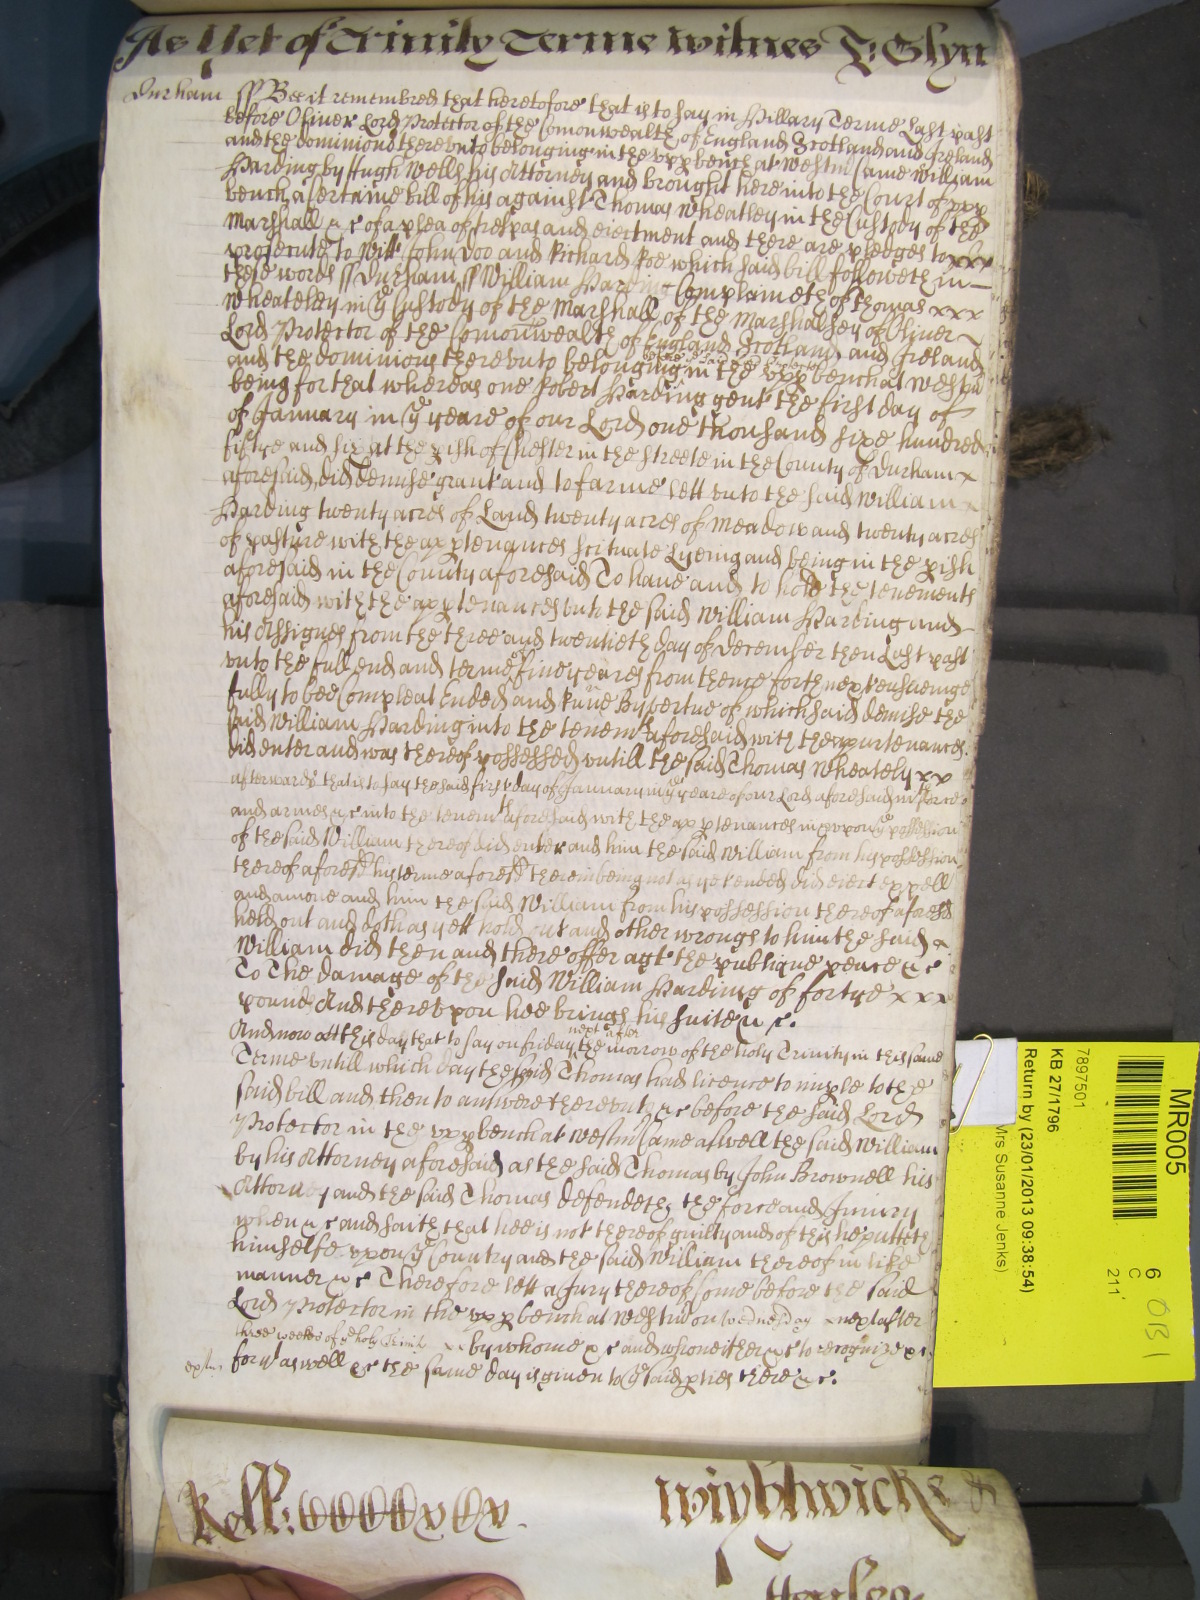 As Yet of Trinity Terme Witnes J: Glyn
Durham ss Bee it remembred that heretofore that is to say in Hillary Terme Last past
before Oliver Lord Protector of the Comonwealth of England Scotland and Ireland
and the dominions therevnto belonging in the vpp bench at Westm Came William
Harding by Hugh Wells his Attorney and brought here into the Court of vpp
bench a Certaine bill of his against Thomas Wheatley in the Custody of the
Marshall &c of a plea of trespas and eiectment and there are pledges to xxx
prosecute to Witt John Doo and Richard Roe which said bill followeth in
these words ss Durham ss William Harding Complaineth of Thomas xxx
Wheateley in ye Custody of the Marshall of the Marshallsey of Oliver
Lord Protector of the Comonwealth of England Scotland and Ireland
and the dominions therevnto belonging in the vpp bench at Westm
being for that whereas one Robert Harding gent the first day of
of January in ye yeare of our Lord one thousand sixe hundred
fiftye and six at the pish of Chester in the Streete in the County of Durham x
aforesaid did demise grant and to farme lett vnto the said William x
Harding twenty acres of Land twenty acres of meadow and twenty acres
of pasture with the apptenances scituate Lyeing and being in the pish
aforesaid in the County aforesaid To haue and to hold the tenements
aforesaid with the apptenances vnto the said William Harding and
his Assignes from the three and twentieth day of December then Last past
vnto the full end and terme of fiue yeares from thence forth next ensueinge
fully to bee Compleat Ended and By vertue of which said demise the
said William Harding into the tenemts aforesaid with thappurtenances
did enter and was thereof possessed vntill the said Thomas Wheately xx
afterwards that is to say the said first day of January in ye yeare of our Lord aforesaid wth force
and armes &c into the tenemts aforesaid with the apptenances in & vpon ye possession
of the said William thereof did enter and him the said William from his possession
thereof aforesd his terme aforesd therein being not as yet ended did eiect expell
and amoue and him the said William from his possession thereof aforesd
held out and doth as yett hold out and other wrongs to him the said x
William did then and there offer agt the publique peace &c
To The damage of the said William Harding of fortye xxx
pounds And therevpon hee brings his suite &c.
next after
And now att this day that is to say on friday the morrow of the holy Trinity in this same
Terme vntill which day the said Thomas had licence to imple to the
said bill and then to answere therevnto &c before the said Lord
Protector in the vpp bench at Westm Came aswell the said William
by his Attorney aforesaid as the said Thomas by John Brownell his
Attorney and the said Thomas defendeth the force and Iniury
when &c and saith that hee is not thereof guilty and of this he putteth
himselfe vpon ye Country and the said William thereof in like
manner &c Therefore lett a Jury thereof Come before the said
Lord Protector in the vpp bench at Westm on Wednesday next after
three weekes of ye holy Trinit by whome &c and who neither &c to recognize &c
for yt aswell &c the same day is given to ye said pties there &c.
Wightwick &
MR005
7897501
KB 27/1796
Return by (23/01/2013 09:38:54)
Mrs Susanne Jenks)
6
C
211